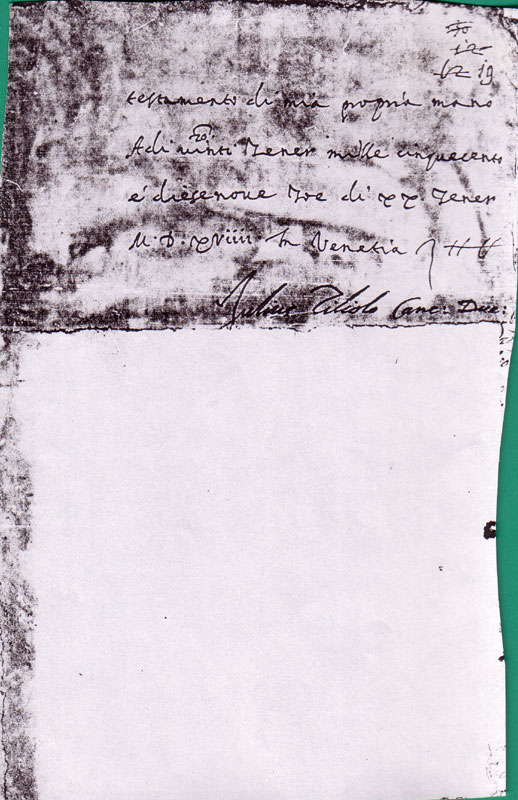 30
12
62 19
testamento di mia propria mano
Adi vinti Zener mille cinquecento
20
é diesenoue Zoe di xx. Zener
M. D. XVIIII In Venetia
Julius Ziliolo Canc. Duc.